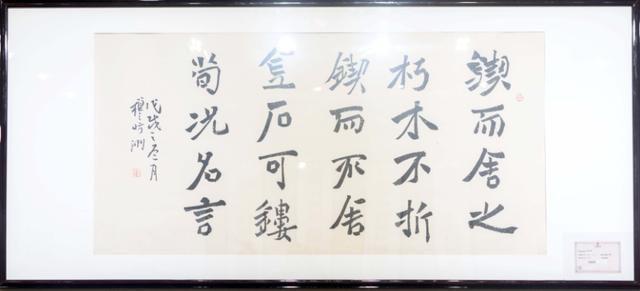 鍥而舍之
朽木不折
鍥而不舍
金石可鏤
荀况名言
戊戌之冬月